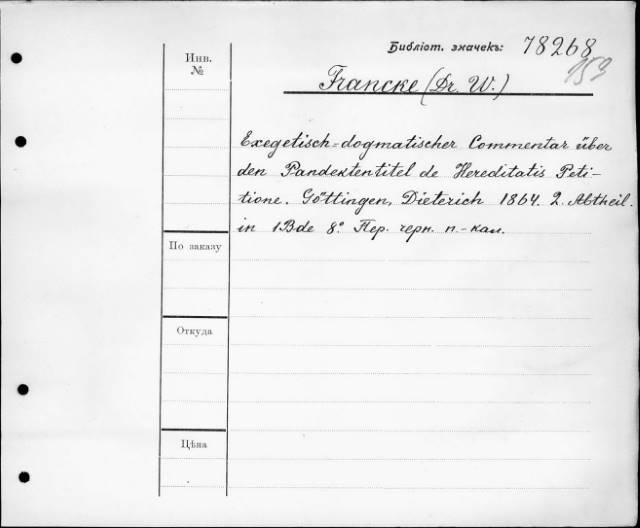 Библіот. значекъ: 78268
153
Инв.
№
Francke (Dr. W.)
Exegetisch-dogmatischer Commentar über
den Pandektentitel de Hereditatis Peti-
tione. Göttingen, Dieterich 1864. 2. Abtheil.
in 1 Bde 8º. Пер. черн. п.-кал.
По заказу
Откуда
Цѣна